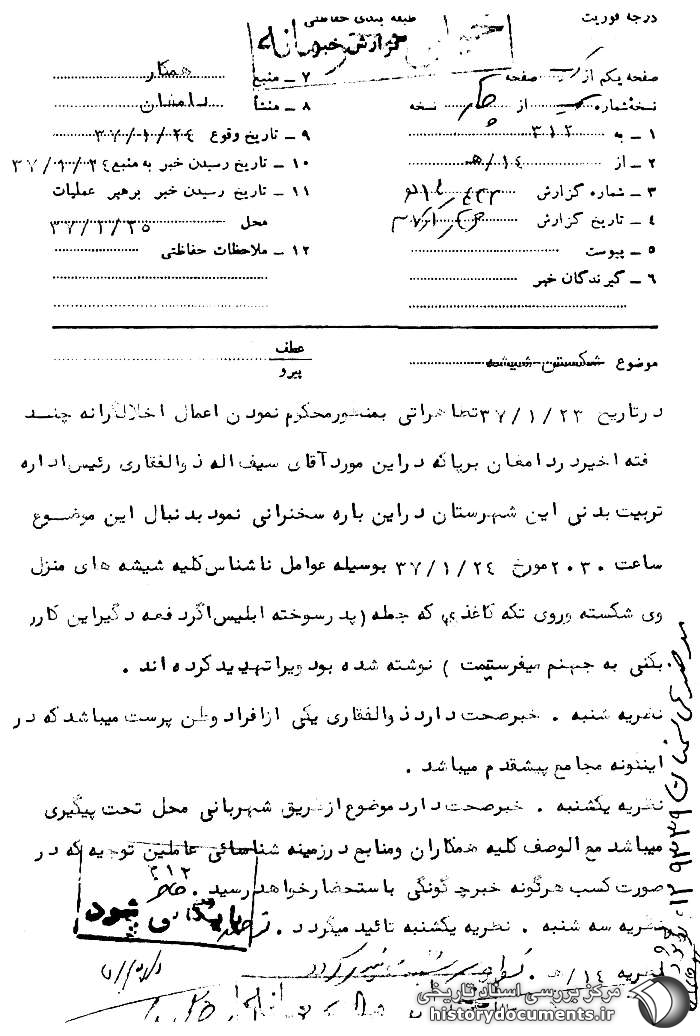 درجه فوریت
طبقه بندی حفاظتی
خیلی محرمانه
گزارش خبر
صفحه یکم از صفحه
نسخه شماره از چهار نسخه
۱ ـ به ۳۱۲
۲ ـ از ۱۴/هـ
۳ ـ شماره گزارش
۴ ـ تاریخ گزارش
۵ ـ پیوست
۶ ـ گیرندگان خبر
۷ ـ منبع همکار
۸ ـ منشأ دامغان
۹ ـ تاریخ وقوع ۳۷/۱/۲۴
۱۰ ـ تاریخ رسیدن خبر به منبع ۳۷/۱/۲۴
۱۱ ـ تاریخ رسیدن خبر برهبر عملیات
محل ۳۷/۱/۲۵
۱۲ ـ ملاحظات حفاظتی
موضوع شکستن شیشه
عطف
پیرو
درتاریخ ۳۷/۱/۲۳ تظاهراتی بمنظورمحکوم نمودن اعمال اخلالگرانه چند
فته اخیرد ردامغان برپاکه دراین مورد آقای سیف اله ذوالفقاری رئیس اداره
تربیت بدنی این شهرستان دراین باره سخنرانی نمود بدنبال این موضوع
ساعت ۲۰۳۰ مورخ ۳۷/۱/۲۴ بوسیله عوامل ناشناس کلیه شیشه های منزل
وی شکسته وروی تکه کاغذی که جمله (پدرسوخته ابلیس اگردفعه دگیراین کارر
بکنی به جهنم میفرستیمت ) نوشته شده بود ویراتهدید کرده اند .
نظریه شنبه . خبرصحت دارد ذوالفقاری یکی ازافراد وطن پرست میباشد که در
اینگونه مجامع پیشقدم میباشد .
نظریه یکشنبه . خبرصحت دارد موضوع ازطریق شهربانی محل تحت پیگیری
میباشد مع الوصف کلیه همکاران ومنابع درزمینه شناسائی عاملین توجیه که در
صورت کسب هرگونه خبرچگونگی باستحضارخواهد رسید .
نظریه سه شنبه . نظریه یکشنبه تائید میگردد .
نظریه ۱۴/هـ .
۳۱۲
بایگانی شود
مرکز بررسی اسناد تاریخی
historydocuments.ir